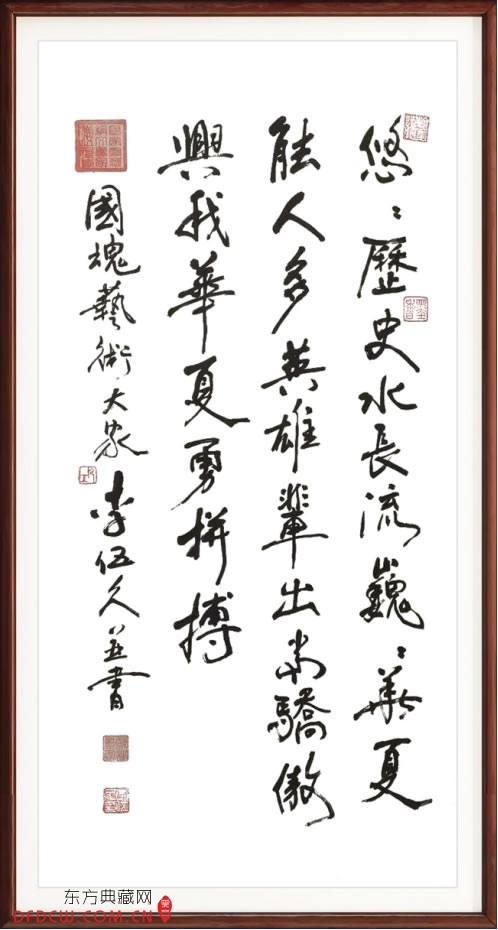 悠〻歷史水長流巍〻華夏
能人多英雄輩出當驕傲
興我華夏勇拼搏
國魂藝術大家李伍久並書
东方典藏网
DFDCW.COM.CN